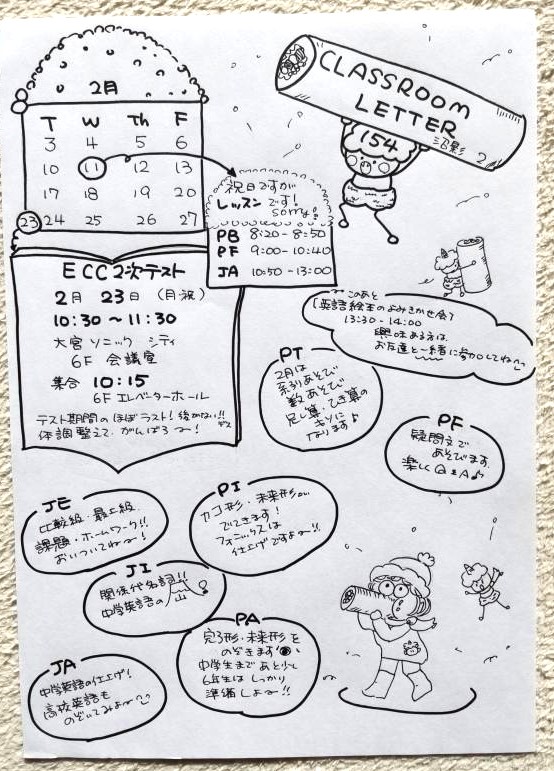 2月
T W Th F
3 4 5 6
10 11 12 13
17 18 19 20
23 24 25 26 27
CLASSROOM
LETTER
沼影 2
154
祝日ですが
レッスンです!
sorry!
PB 8:20-8:50
PF 9:00-10:40
JA 10:50-13:00
ECC2次テスト
2月 23日 (月・祝)
10:30~11:30
大宮 ソニック シティ
6F 会議室
集合 10:15
6F エレベーターホール
テスト期間の ほぼラスト! 後がない!! デス
体調整えて がんばろ~!
このあと
「英語絵本のよみきかせ会」
13:30-14:00
興味ある方は
お友達と一緒に参加してね
PT
2月は
系列あそび
数あそび
足し算、ひき算の
きりに
なります♪
PF
疑問文で
あそびます。
楽しくQ&A♪
JE
比較級・最上級
課題・ホームワーク!!
おいついてね~!
PI
カコ形・未来形が
でてきます!
フォニックスは
仕上げですよ~!!
JI
関係代名詞!!
中学英語の山
PA
完了形・未来形を
のぞきます
中学生まであと少し
6年生はしっかり
準備しよ~!!
JA
中学英語の仕上げ!
高校英語も
のぞいてみよ~